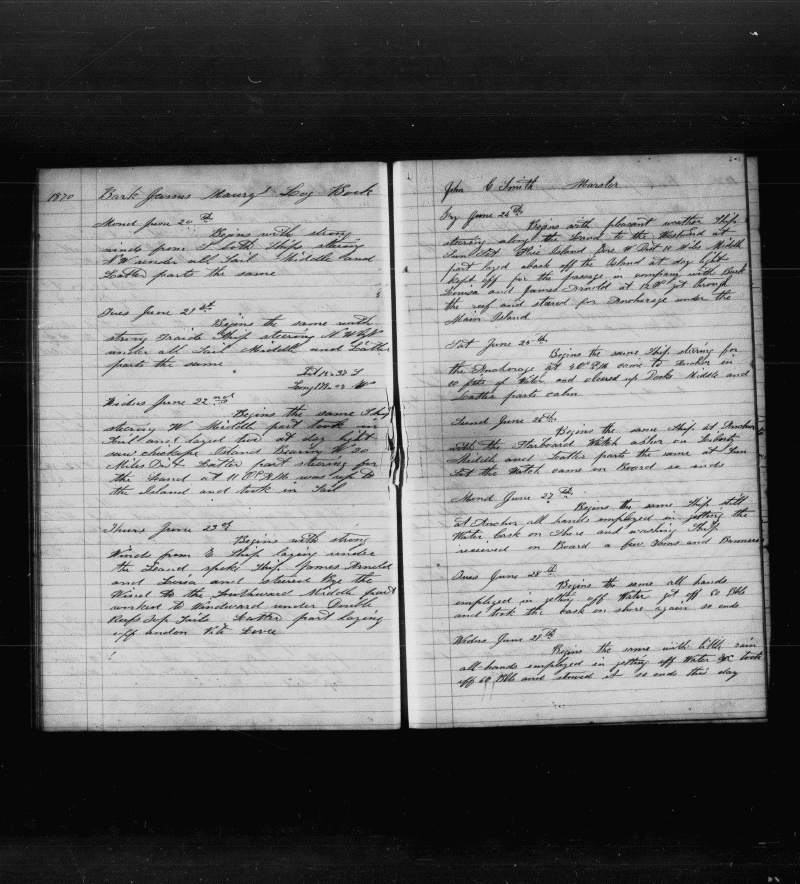 1870 Bark James Maury Log Book
Mond June 20th
Begins with strong
winds from S both Ships stering
N W under all Sail Middle and
Latter parts the same
Tues June 21st
Begins the same with
strong Traids Ship steering N W by W
under all Sail Middle and Latter
parts the same
Lat 15-37 S
Long W
Wides June 22nd
Begins the same Ship
stering W Middle part took in
Sail and layed two at day light
saw Island Bearin W 20
Miles Dist Latter part steering for
the Land at 11 up to
the Island and took in Sail
Thurs June 23d
Begins with strong
Winds from E Ship laying under
the Land spoke Ship James Arnold
and Louisa and stered Bye the
Wind to the Southward Middle part
worked to Windward under Double
Reefs Top Sails Latter part laying
off andon
John C Smith Marster
Fry June 24th
Begins with pleasant weather Ship
stering along the Land to the Westward at
Sun Set Island Bore W Dist Mils Middle
part layed aback off the Island at day light
kept off for the passage in company with Bark
Louisa and James Arnold at 12 M got through
the reef and stered for Anchorage under the
Main Island
Sat June 25th
Begins the same Ship stering for
the Anchorage at 4 P M came to Anchor in
10 fths of Water and clered up Decks Middle and
Latter parts calm
Sund June 26th
Begins the same Ship at Anchor
with the Starboard Watch asher on Liberty
Middle and Latter parts the same at Sun
Set the Watch came on Board so ends
Mond June 27th
Begins the same Ship still
at Anchor all hands employed in getting the
Water cask on Shore and washing Ship
received on Board a few Yams and Bannens
Tues June 28th
Begins the same all hands
employed in getting off Water got off 60 Bbls
and took the cask on shore again so ends
Wides June 29th
Begins the same with little rain
all hands employed in getting off Water &c took
off 60 Bbls and stowed it so ends this day